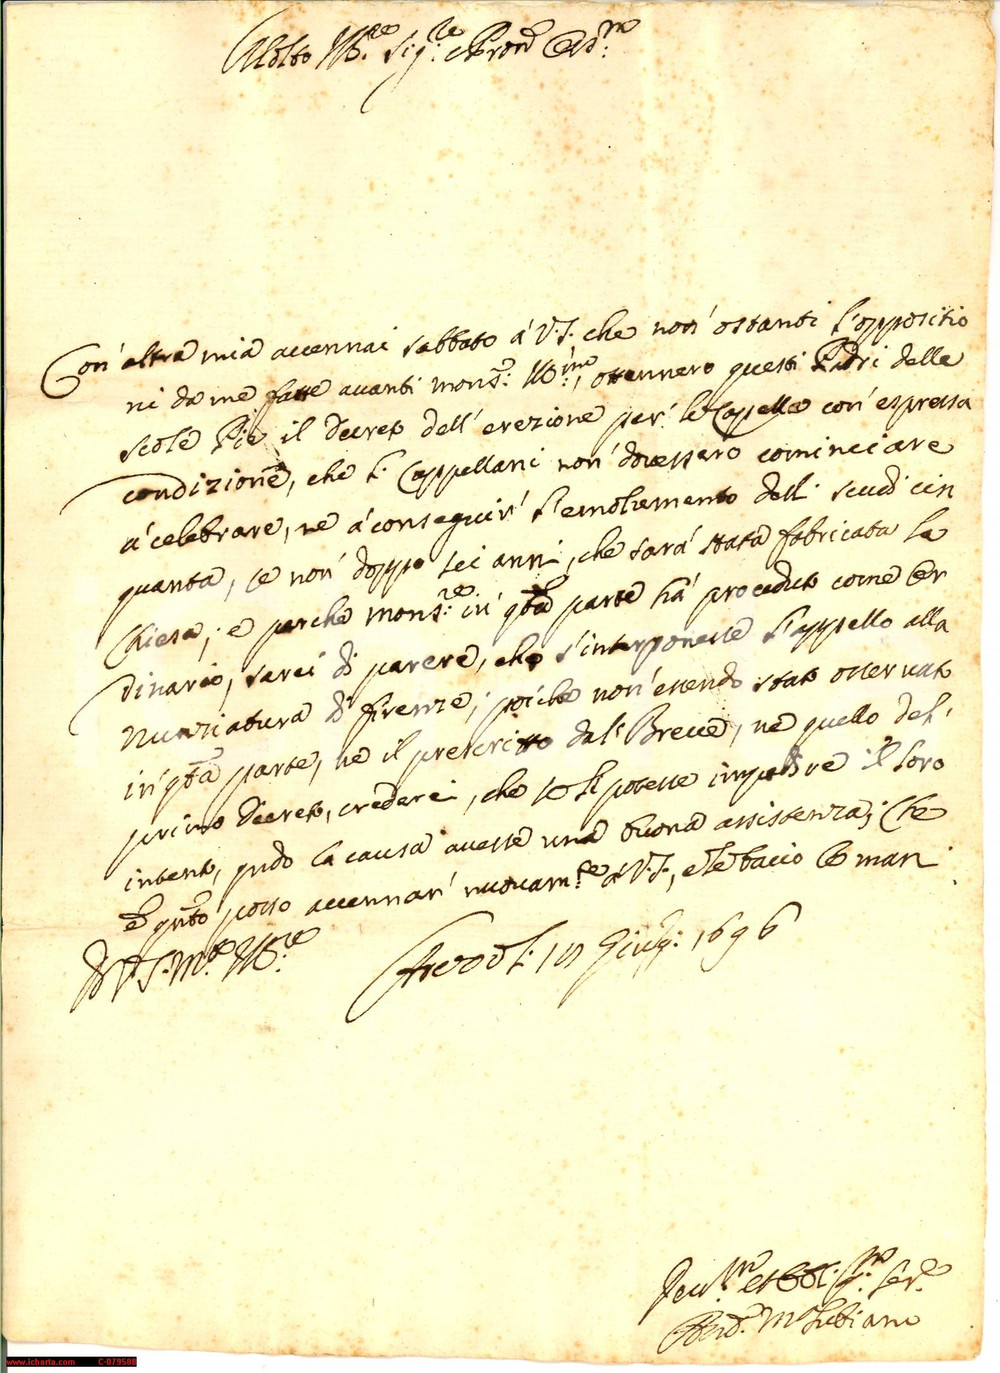 Molto Ill.re Sig.re e Pron Oss.mo
Con' altra mia accennai sabbato á V.S. che non' ostanti l'oppositio
ni da me fatte avanti Mons.r Ill.mo, ottennero questi Padri delle
scole Pie il decreto dell' erezione per' le Cappelle con' espressa
condizione, che li Cappellani non' dovessero cominciare
á celebrare, ne á conseguir' l'emolumento delli scudi cin
quanta, se non' doppo sei anni, che sará stata fabricata la
Chiesa; e perche Mons.re in' qta parte há proceduto come Or
dinario, sarei di parere, che s'interponesse l'appello alla
Nunziatura di Firenze; poiche non' essendo stato osservato
in' qta parte, ne il prescritto dal' Breve, ne quello del'
primo decreto, crederei, che se li potesse impedire il loro
intento, qndo la causa avesse una buona assistenza; Che
é qnto posso accennar' nuovam.te á V.S., e le bacio le mani
Di V.S. M.to Ill.re
Giug: 1696
Ser.re
www.icharta.com C-079588